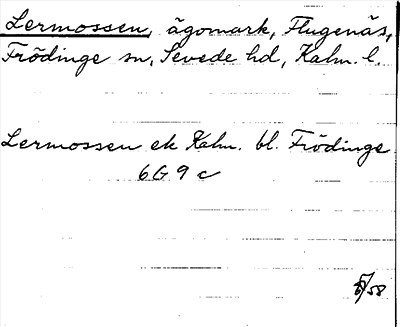 Lermossen, ägomark, Flugenäs,
Frödinge sn, Sevede hd, Kalm. l.
Lermossen ek Kalm. bl. Frödinge
6G9c